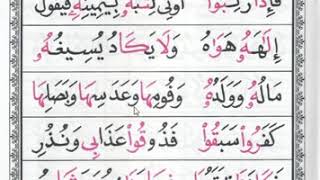 فَإِذَا رَكِبُوا۟ أُوتِىَ كِتَٰبَهُۥ بِيَمِينِهِۦ فَيَقُولُ
إِلَٰهَهُۥ هَوَىٰهُ وَلَا يَكَادُ يُسِيغُهُۥ
مَالُهُۥ وَوَلَدُهُۥٓ وَفُومِهَا وَعَدَسِهَا وَبَصَلِهَا
كَفَرُوا۟ سَبَقُوٓا۟ فَذُوقُوا۟ عَذَابِى وَنُذُرِ